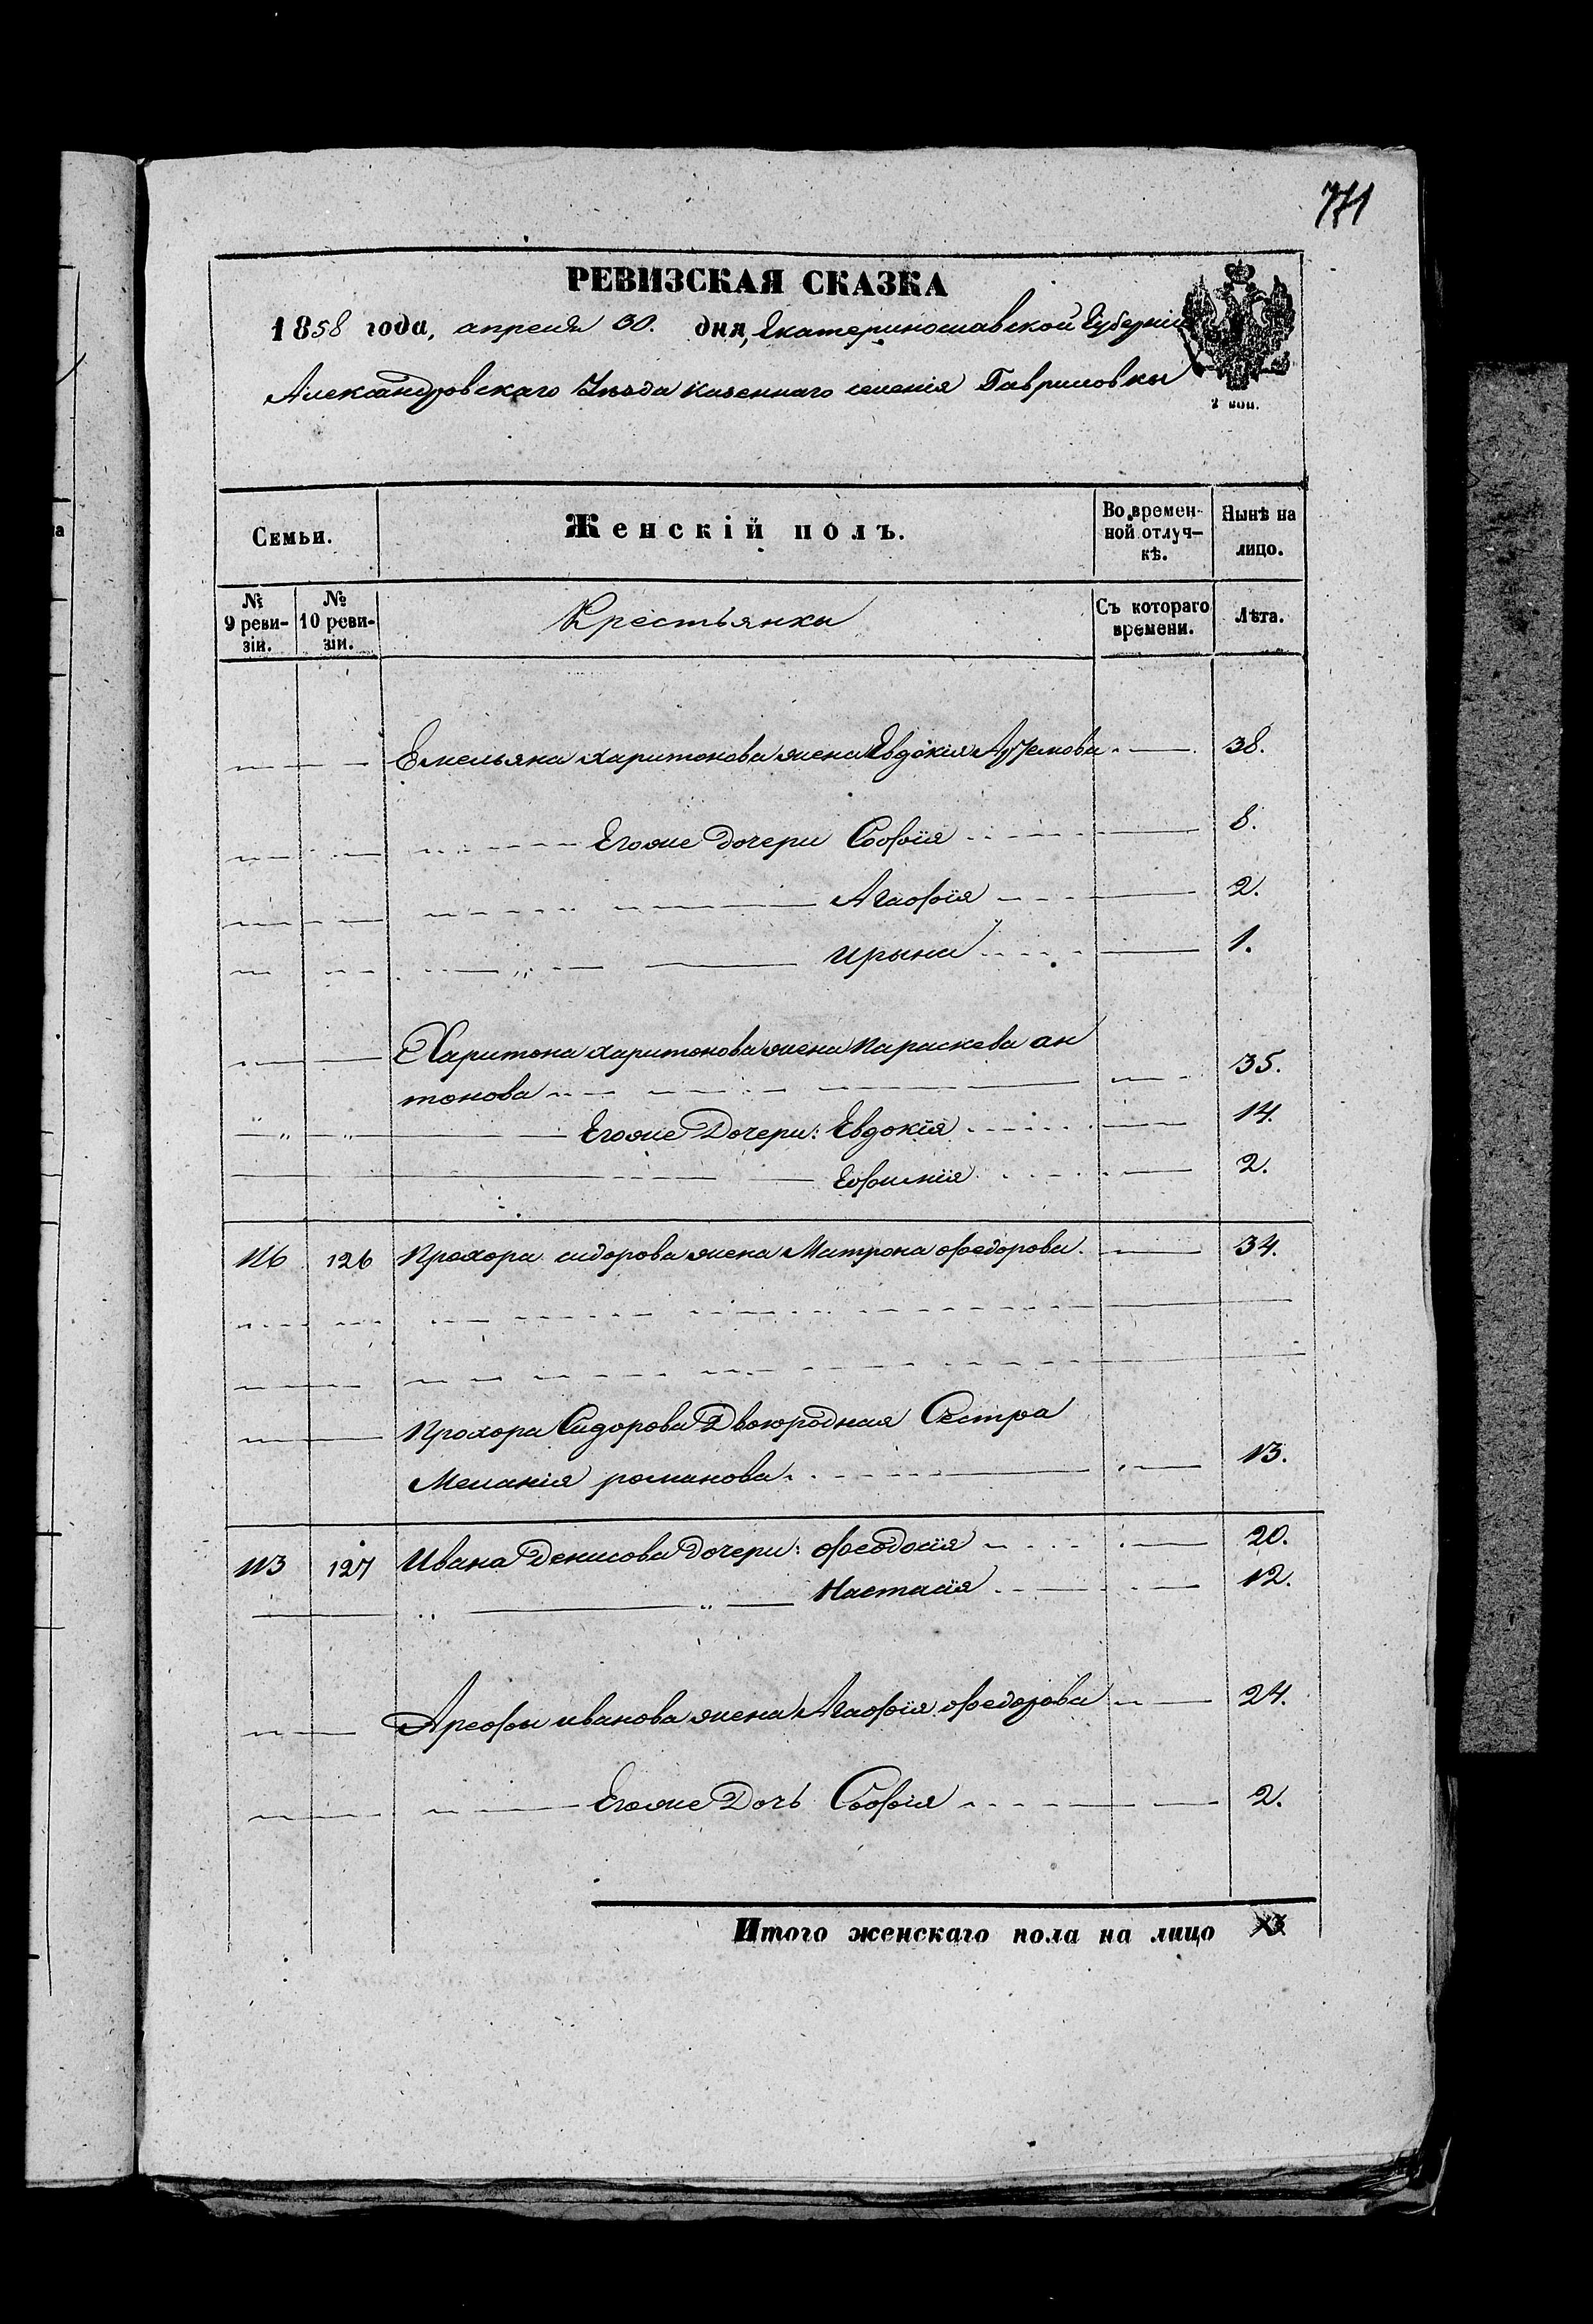 771
РЕВИЗСКАЯ СКАЗКА
1858 года, апреля 30. дня, Екатеринославской Губерніи
Александровскаго Уѣзда казеннаго селенія Гавриловки
2 коп.
Семьи. Женскій полъ. Во времен-ной отлуч-кѣ. Нынѣ на лицо.
№ 9 реви-зіи. № 10 реви-зіи. Крестьянки Съ котораго времени. Лѣта.
Емельяна харитонова жена Евдокія 38.
Егоже дочери Софія 8.
Агафія 2.
Ирына 1.
Харитона харитонова жена Параскева ан
тонова 35.
Егоже Дочери: Евдокія 14.
Ефимія 2.
116 126 Прохора сидорова жена Матрона федорова. 34.
Прохора Сидорова Двоюродная Сестра
Меланія романова. 13.
113 127 Ивана Денисова дочери: феодосія 20.
Настасія 12.
Арефы иванова жена Агафія федорова 24.
Егоже Дочь Софія 2.
Итого женскаго пола на лицо